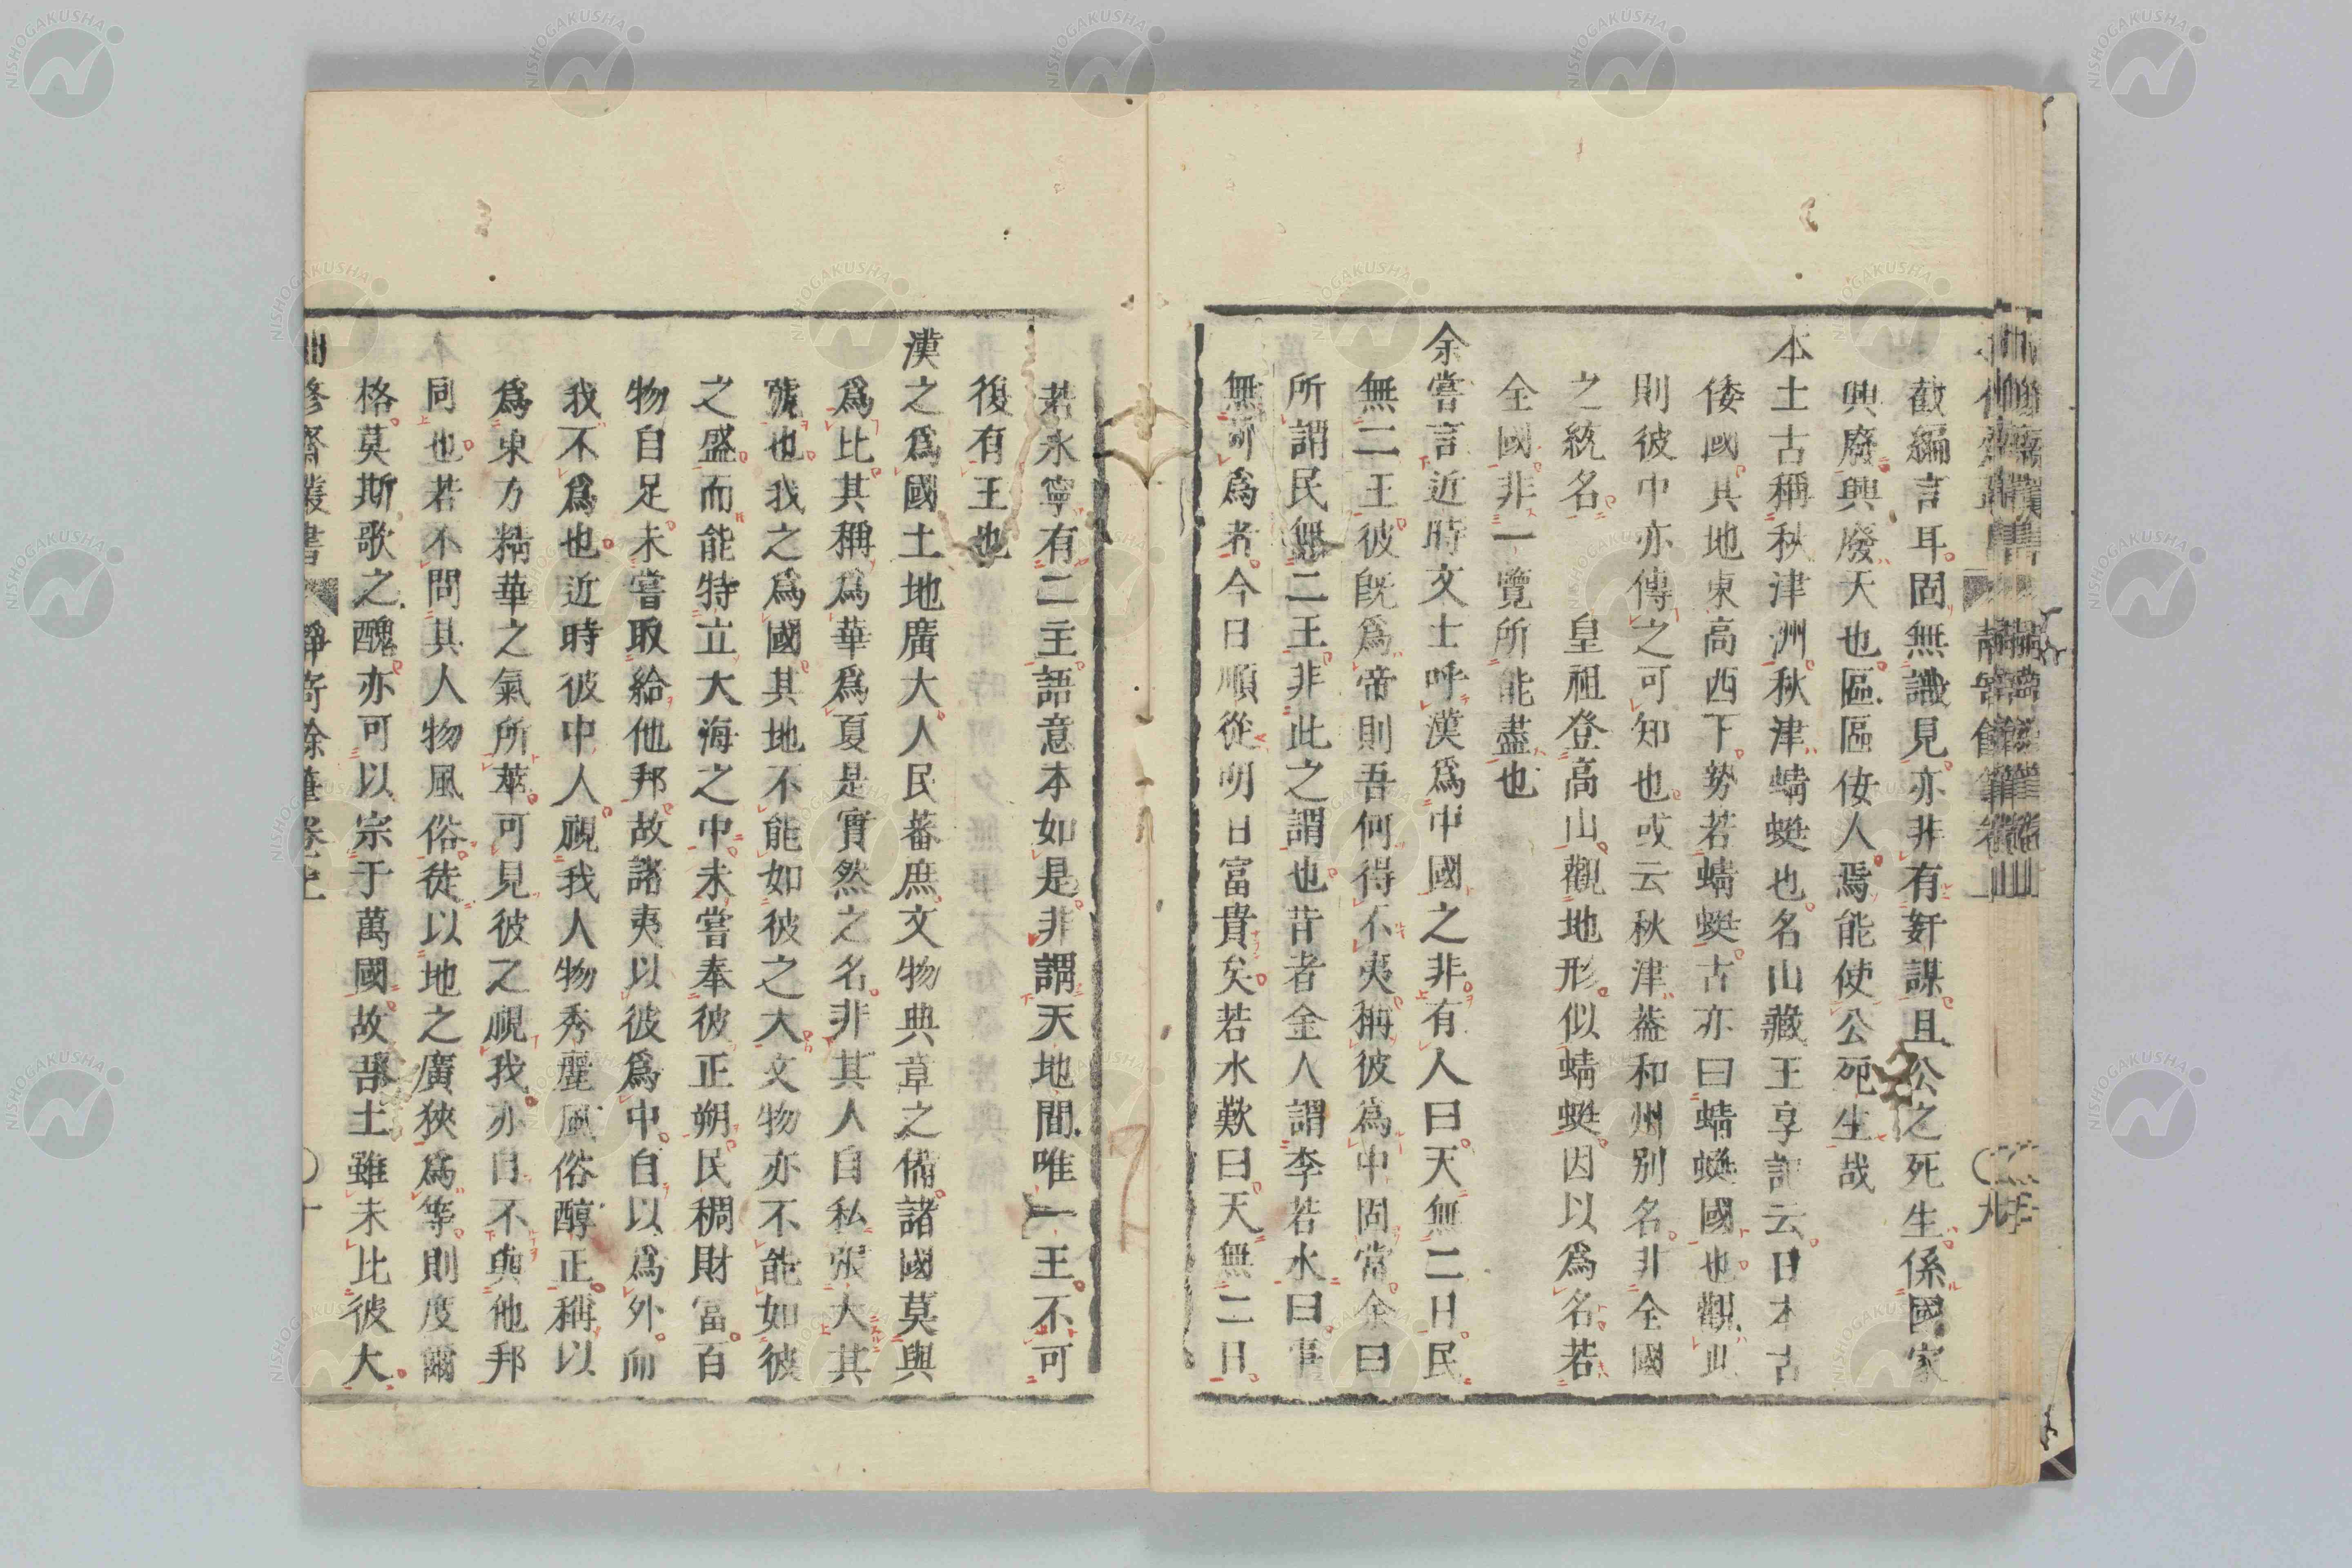 歡編言耳固無識見亦非有奸謀且公之死生係國家
興廢興廢天也區區伖人焉能使公死生哉
本土古稱秋津洲秋津蜻蜓也名山藏王享記云日本古
倭國其地東高西下勢若蜻蜓古亦曰蜻蜓國也觀此
則彼中亦傳之可知也或云秋津葢和州別名非全國
之統名 皇祖登高山觀地形似蜻蜓因以爲名若
全國非一覽所能盡也
余嘗言近時文士呼漢爲中國之非有人曰天無二日民
無二王彼旣爲帝則吾何得不夷稱彼爲中固當余曰
所謂民無二王非此之謂也昔者金人謂李若水曰事
無可爲者今日順從明日富貴矣若水歎曰天無二日
若水寧有二主語意本如是非謂天地間唯一王不可
復有王也
漢之爲國土地廣大人民蕃庶文物典章之備諸國莫與
爲比其稱爲華爲夏是實然之名非其人自私張大其
號也我之爲國其地不能如彼之大文物亦不能如彼
之盛而能特立大海之中未嘗奉彼正朔民稠財富百
物自足未嘗取給他邦故諸夷以彼爲中自以爲外而
我不爲也近時彼中人覗我人物秀麗風俗醇正稱以
爲東方精華之氣所萃可見彼之視我亦自不與他邦
同也若不問其人物風俗徒以地之廣狹爲等則度爾
格莫斯歌之醜亦可以宗于萬國故吾土雖未比彼大
修齋叢書 靜寄餘筆卷上 ○十